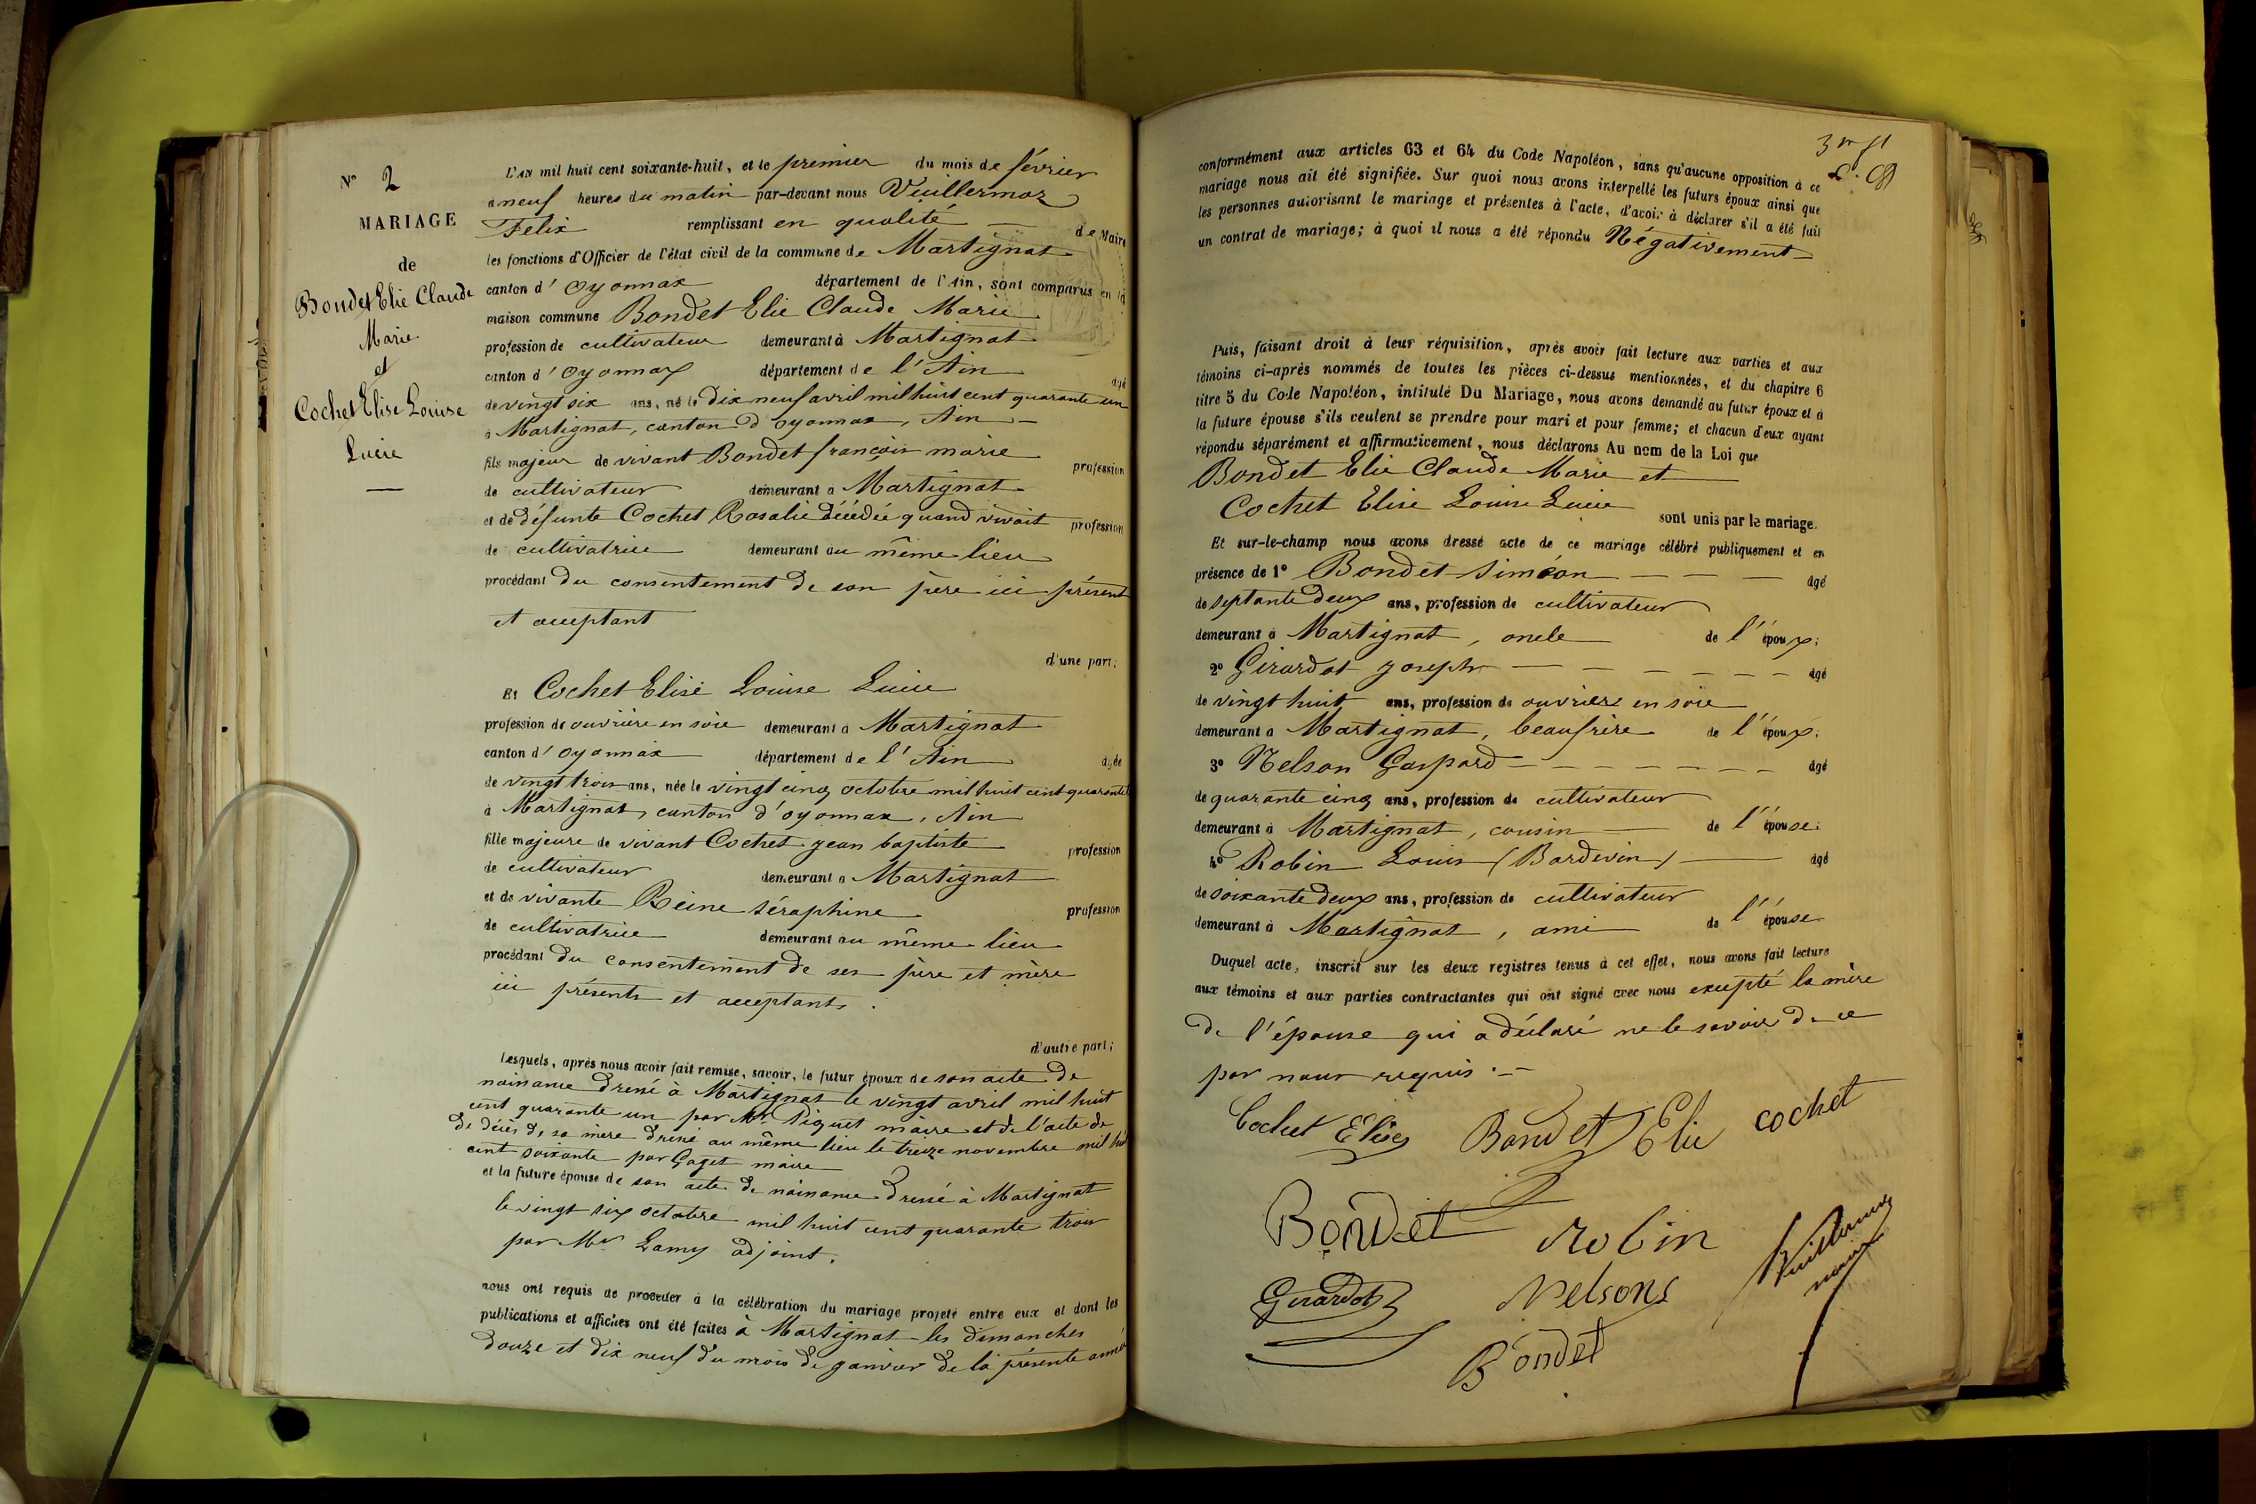 N° 2
MARIAGE
de
Bondet Elie Claude
Marie
et
Cochet Elise Louise
Lucie
L'AN mil huit cent soixante-huit, et le premier du mois de février
à neuf heures du matin par-devant nous Vuillermoz
Felix remplissant en qualité de Maire
les fonctions d'Officier de l'état civil de la commune de Martignat
canton d' oyonnax département de l'Ain, sont comparus en la
maison commune Bondet Elie Claude Marie
profession de cultivateur demeurant à Martignat
canton d' oyonnax département de l'Ain âgé
de vingt six ans, né le dix neuf avril mil huit cent quarante un
à Martignat, canton d'oyonnax, Ain
fils majeur de vivant Bondet françois marie profession
de cultivateur demeurant à Martignat
et de défunte Cochet Rosalie décédée quand vivait profession
de cultivatrice demeurant au même lieu
procédant du consentement de son père ici présent
et acceptant
d'une part;
Et Cochet Elise Louise Lucie
profession de ouvrière en soie demeurant à Martignat
canton d' oyonnax département de l'Ain âgée
de vingt trois ans, née le vingt cinq octobre mil huit cent quarante
à Martignat, canton d'oyonnax, Ain
fille majeure de vivant Cochet jean baptiste profession
de cultivateur demeurant à Martignat
et de vivante Reine séraphine profession
de cultivatrice demeurant au même lieu
procédant du consentement de ses père et mère
ici présents et acceptants.
d'autre part;
Lesquels, après nous avoir fait remise, savoir, le futur époux de son acte de
naissance dressé à Martignat le vingt avril mil huit
cent quarante un par Mr Piquet maire et de l'acte de
de décès de sa mère dressé au même lieu le treize novembre mil huit
cent soixante par Gaget maire
et la future épouse de son acte de naissance dressé à Martignat
le vingt six octobre mil huit cent quarante trois
par Mr Lamy adjoint.
nous ont requis de procéder à la célébration du mariage projeté entre eux et dont les
publications et affiches ont été faites à Martignat les dimanches
douze et dix neuf du mois de janvier de la présente année
conformément aux articles 63 et 64 du Code Napoléon, sans qu'aucune opposition à ce
mariage nous ait été signifiée. Sur quoi nous avons interpellé les futurs époux ainsi que
les personnes autorisant le mariage et présentes à l'acte, d'avoir à déclarer s'il a été fait
un contrat de mariage; à quoi il nous a été répondu Négativement
Puis, faisant droit à leur réquisition, après avoir fait lecture aux parties et aux
témoins ci-après nommés de toutes les pièces ci-dessus mentionnées, et du chapitre 6
titre 5 du Code Napoléon, intitulé Du Mariage, nous avons demandé au futur époux et à
la future épouse s'ils veulent se prendre pour mari et pour femme; et chacun d'eux ayant
répondu séparément et affirmativement, nous déclarons Au nom de la Loi que
Bondet Elie Claude Marie et
Cochet Elise Louise Lucie sont unis par le mariage.
Et sur-le-champ nous avons dressé acte de ce mariage célébré publiquement et en
présence de 1° Bondet siméon âgé
de septante deux ans, profession de cultivateur
demeurant à Martignat, oncle de l'époux;
2° Girardot joseph âgé
de vingt huit ans, profession de ouvrier en soie
demeurant à Martignat, beaufrère de l'époux;
3° Nelson Gaspard âgé
de quarante cinq ans, profession de cultivateur
demeurant à Martignat, cousin de l'épouse;
4° Robin Louis (Bardevin) âgé
de soixante deux ans, profession de cultivateur
demeurant à Martignat, ami de l'épouse
Duquel acte, inscrit sur les deux registres tenus à cet effet, nous avons fait lecture
aux témoins et aux parties contractantes qui ont signé avec nous excepté la mère
de l'épouse qui a déclaré ne le savoir de ce
par nous requis.
Cochet Elise Bondet Elie cochet
Bondet Robin Vuillermoz
maire
Girardot Nelsons
Bondet